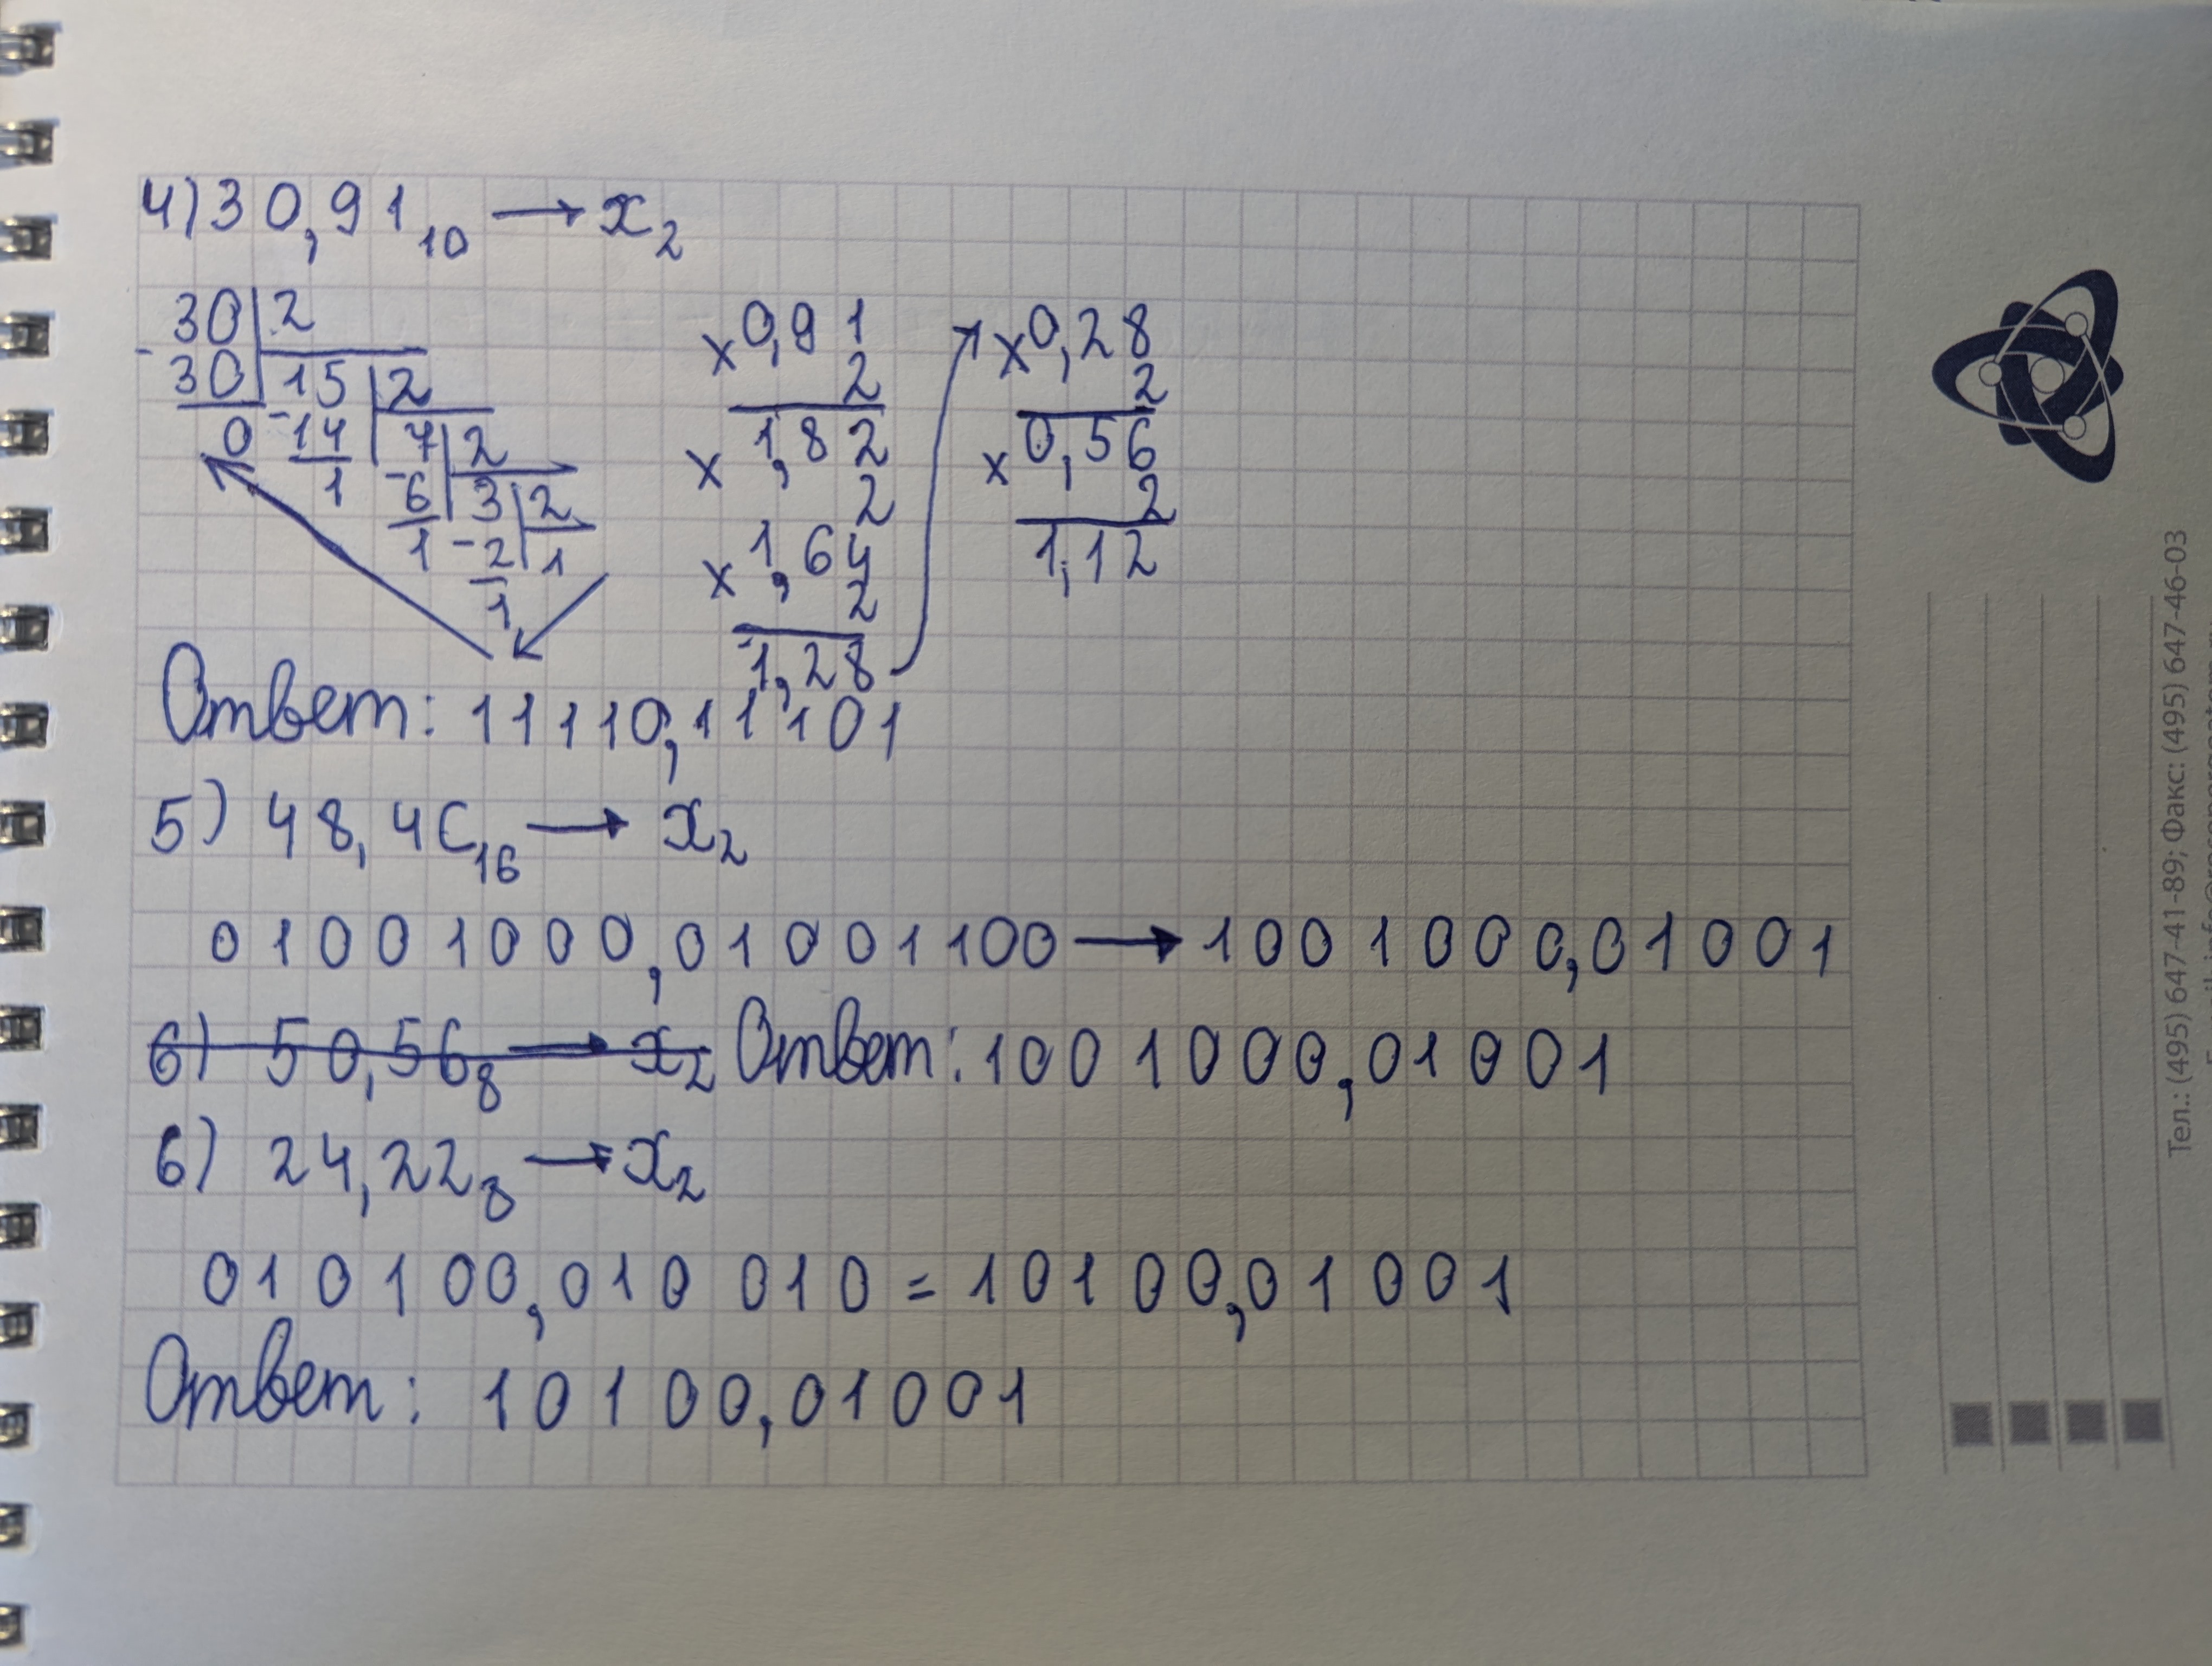 4) 30,91₁₀ → x₂
30 | 2
- 30 | 15 | 2
0 - 14 | 7 | 2
1 - 6 | 3 | 2
1 - 2 | 1
1
x 0,91
2
x 1,82
2
x 1,64
2
1,28
x 0,28
2
x 0,56
2
1,12
Ответ: 11110,11101
5) 48,4C₁₆ → x₂
01001000,01001100 → 1001000,01001
6) 50,56₈ → x₂ Ответ: 1001000,01001
6) 24,22₈ → x₂
010100,010 010 = 10100,01001
Ответ: 10100,01001
Тел.: (495) 647-41-89; Факс: (495) 647-46-03